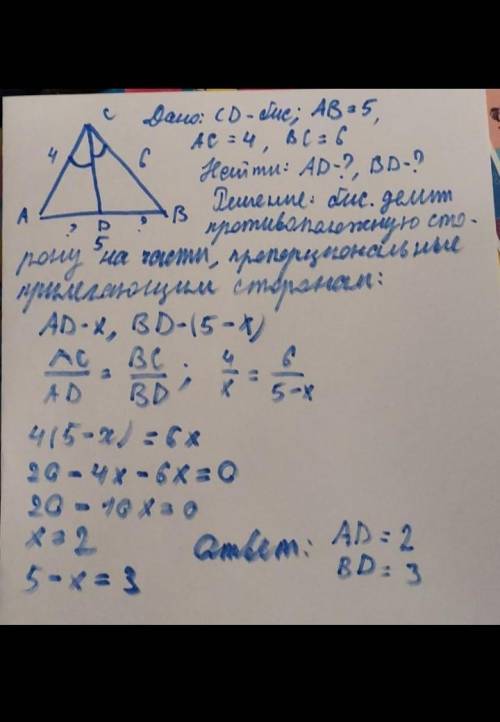 C
4
6
A
?
D
?
B
5
Дано: CD - бис; AB = 5,
AC = 4, BC = 6
Найти: AD-?, BD-?
Решение: бис. делит
противоположную сто-
рону на части, пропорциональные
прилегающим сторонам:
AD - x, BD - (5 - x)
AC/AD = BC/BD; 4/x = 6/5-x
4(5 - x) = 6x
20 - 4x - 6x = 0
20 - 10x = 0
x = 2
5 - x = 3
Ответ: AD = 2
BD = 3